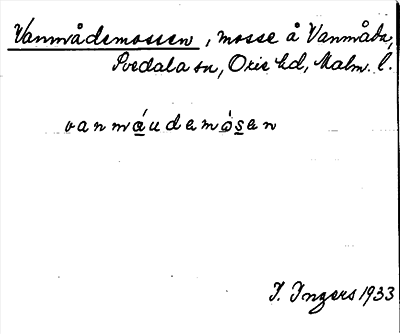 Vanmådemossen, mosse å Vanmåda,
Svedala sn, Oxie hd, Malm. l.
vanmáudemósen
I. Ingers 1933